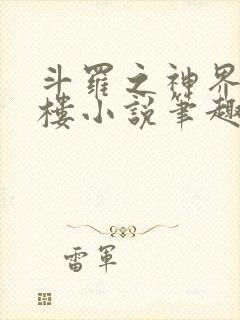 斗羅之神界
樓小説筆趣
雷軍